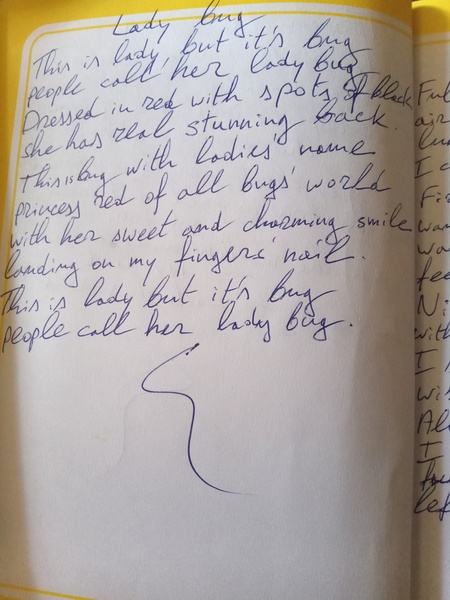 Lady bug
This is lady but it's bug
people call her lady bug
Dressed in red with spots of black
she has real stunning back.
This is bug with ladies' name
princess red of all bugs' world
with her sweet and charming smile
landing on my fingers' nail.
This is lady but it's bug
people call her lady bug.
air
I
Fi
wa
wa
fee
Ni
with
I
wi
Al
I
lef